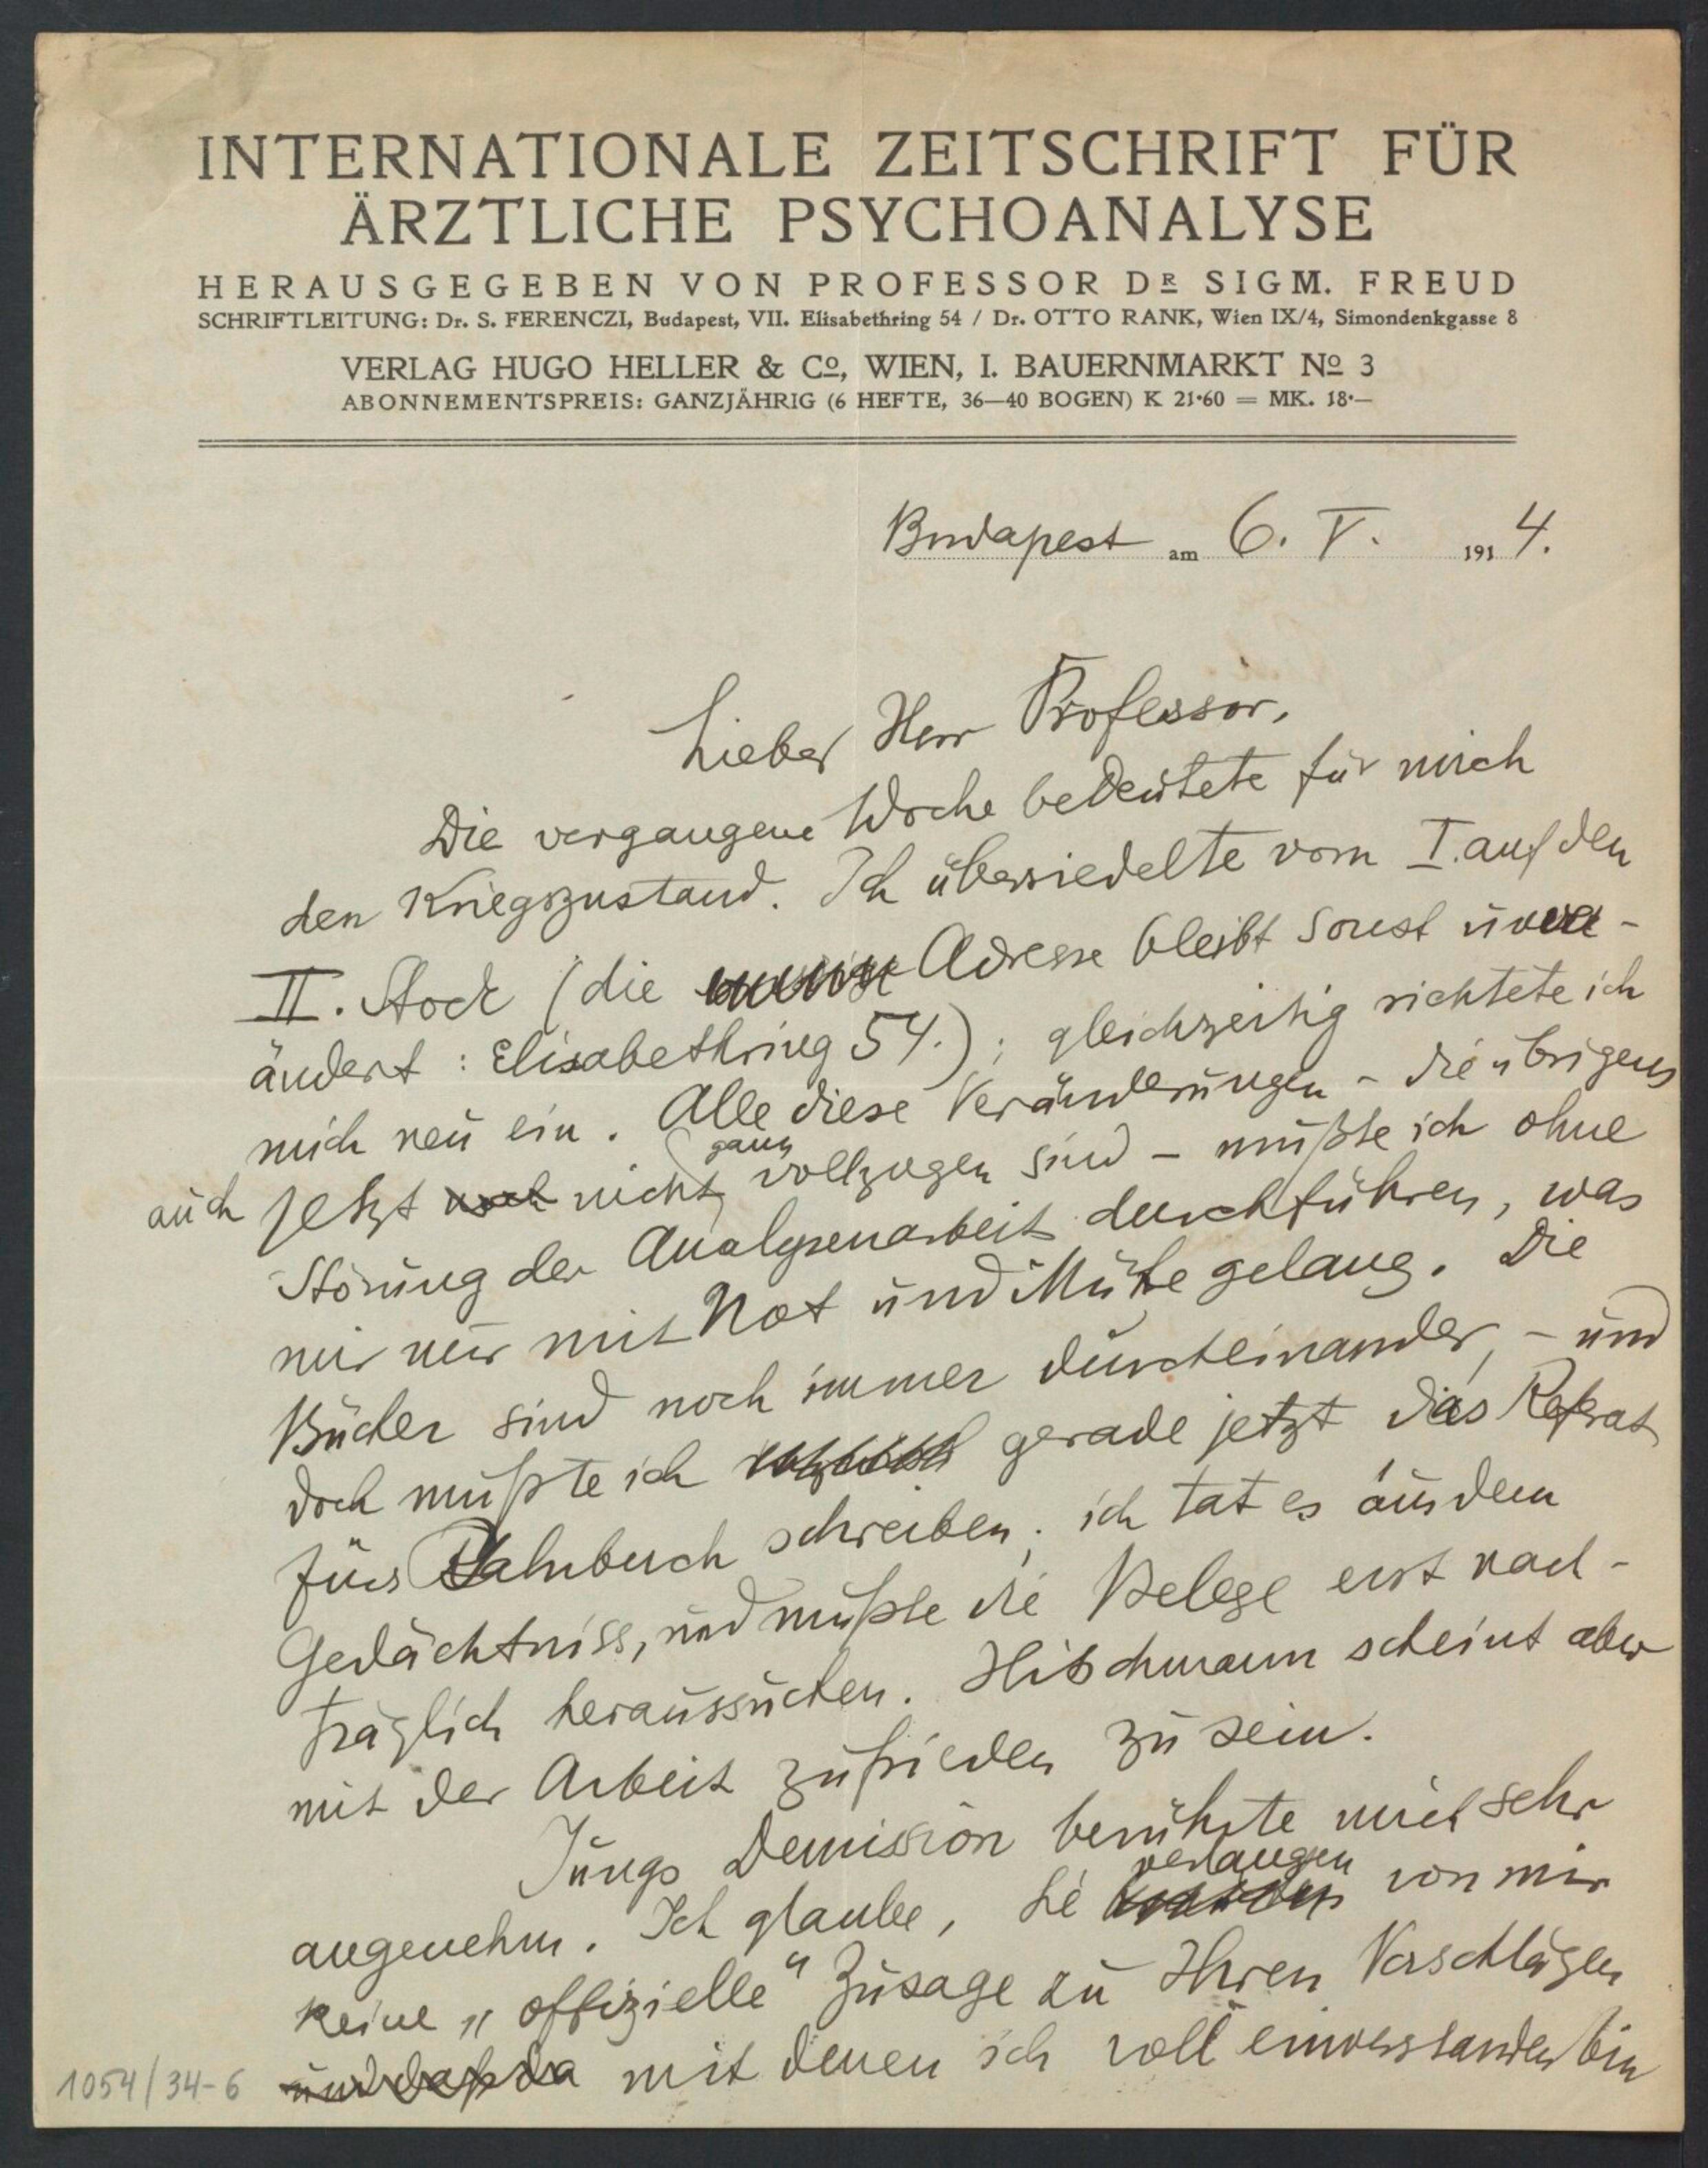 INTERNATIONALE ZEITSCHRIFT FÜR
ÄRZTLICHE PSYCHOANALYSE
HERAUSGEGEBEN VON PROFESSOR DR SIGM. FREUD
SCHRIFTLEITUNG: Dr. S. FERENCZI, Budapest, VII. Elisabethring 54 / Dr. OTTO RANK, Wien IX/4, Simondenkgasse 8
VERLAG HUGO HELLER & Co, WIEN, I. BAUERNMARKT No 3
ABONNEMENTSPREIS: GANZJÄHRIG (6 HEFTE, 36—40 BOGEN) K 21·60 = MK. 18·—
Budapest am 6. V. 1914.
Lieber Herr Professor,
Die vergangene Woche bedeutete für mich
den Kriegszustand. Ich übersiedelte vom I. auf den
II. Stock (die Adresse bleibt sonst unver-
ändert: Elisabethring 54.); gleichzeitig richtete ich
mich neu ein. Alle diese Veränderungen – die übrigens
auch jetzt noch nicht ganz vollzogen sind – mußte ich ohne
Störung der Analysenarbeit durchführen, was
mir nur mit Not und Mühe gelang. Die
Bücher sind noch immer durcheinander, – und
doch mußte ich gerade jetzt das Referat
fürs Jahrbuch schreiben; ich tat es aus dem
Gedächtniss, und mußte die Belege erst nach-
träglich heraussuchen. Hitschmann scheint aber
mit der Arbeit zufrieden zu sein.
Jungs Demission berührte mich sehr
angenehm. Ich glaube, Sie verlangen von mir
keine „offizielle“ Zusage zu Ihren Vorschlägen
und daß da mit denen ich voll einverstanden bin
1054/34-6